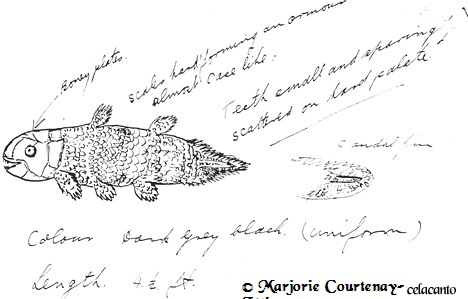 Boney plates.
scales hard forming an armour
almost case like.
Teeth small and sparing
scattered on hard palate.
Caudal fin
Colour Dark grey black. (uniform)
Length. 4½ ft.
© Marjorie Courtenay-
celacanto